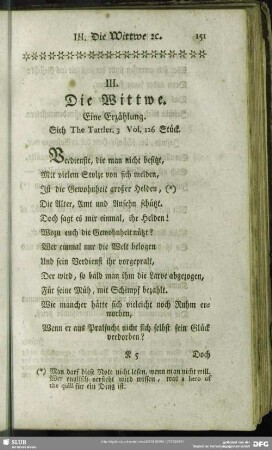 III. Die Wittwe ꝛc. 151
III.
Die Wittwe.
Eine Erzählung.
Sieh The Tattler. 3 Vol. 126 Stück.
Verdienste, die man nicht besitzt,
Mit vielem Stolze von sich melden,
Ist die Gewohnheit großer Helden, (*)
Die Alter, Amt und Ansehn schützt.
Doch sagt es mir einmal, ihr Helden!
Wozu euch die Gewohnheit nützt?
Wer einmal nur die Welt belogen
Und sein Verdienst ihr vorgepralt,
Der wird, so bald man ihm die Larve abgezogen,
Für seine Müh, mit Schimpf bezahlt.
Wie mancher hätte sich vielleicht noch Ruhm er-
worben,
Wenn er aus Pralsucht nicht sich selbst sein Glück
verdorben?
K 5 Doch
(*) Man darf diese Note nicht lesen, wenn man nicht will.
Wer englisch versteht wird wissen, was a hero of
the quill für ein Ding ist.
SLUB
DFG